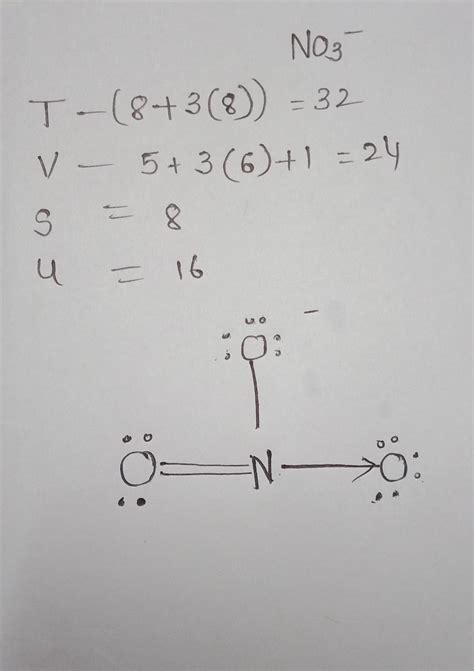 NO₃⁻
T - (8+3(8)) = 32
V - 5+3(6)+1 = 24
S = 8
U = 16
O⁻
O=N→O